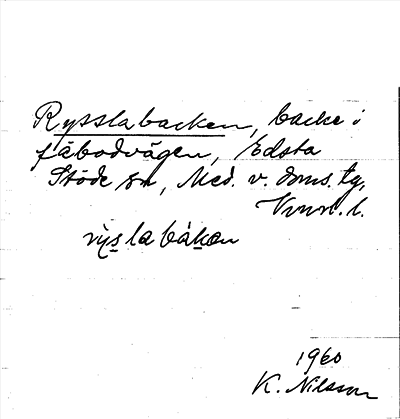 Rysslabacken, backe i
fäbodvägen, Edsta
Stöde sn, Med. v. doms. tg,
Vnorr. l.
rys la bakan
1960
K. Nilsson